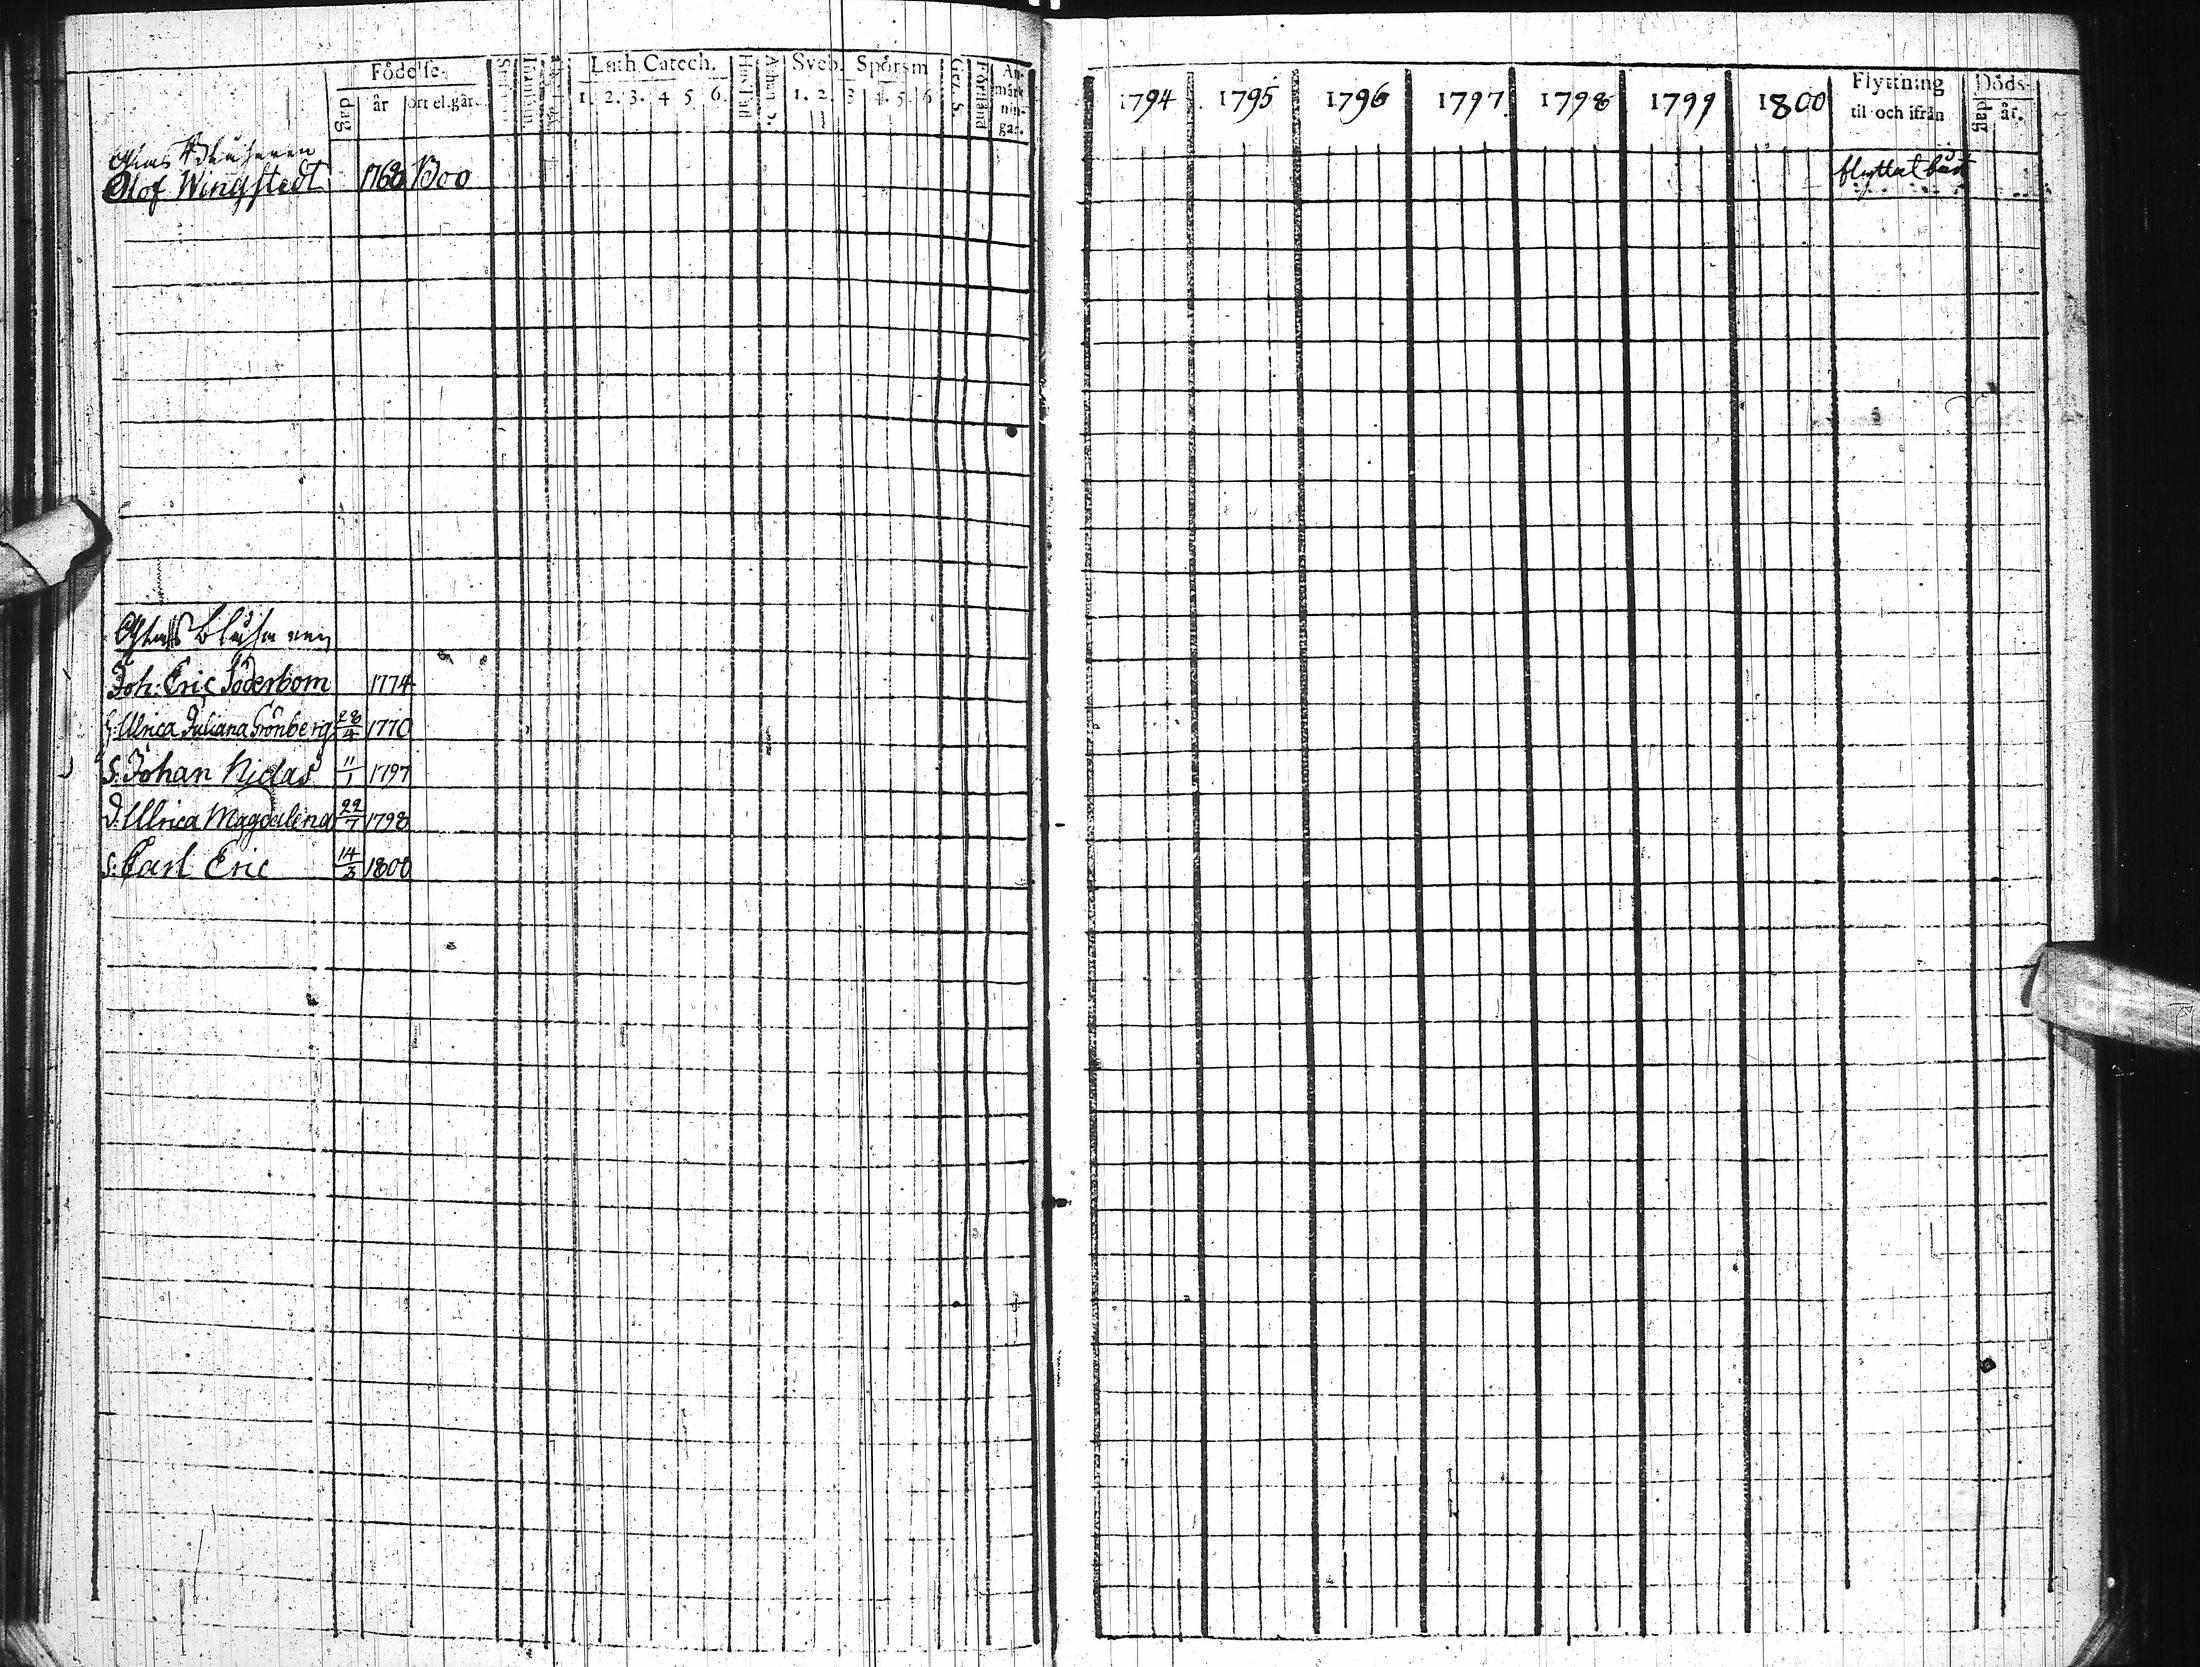 Födelse-
dag
år
ort el. gård
Luth. Catech.
1. 2. 3. 4 5 6.
Sveb. Spörsm
1. 2. 3 4. 5. 6
Förstånd
An-
märk
nin-
gar.
1794 1795 1796 1797 1798 1799 1800
Flyttning
til och ifrån
Döds-
dag
år.
Glas
Olof Wingstedt 1768 Boo
flyttat
Joh: Eric Söderbom 1774
h. Ulrica Juliana Grönberg 28/4 1770
S. Johan Niclas 11/1 1797
D. Ulrica Magdalena 22/7 1798
S. Carl Eric 14/3 1800